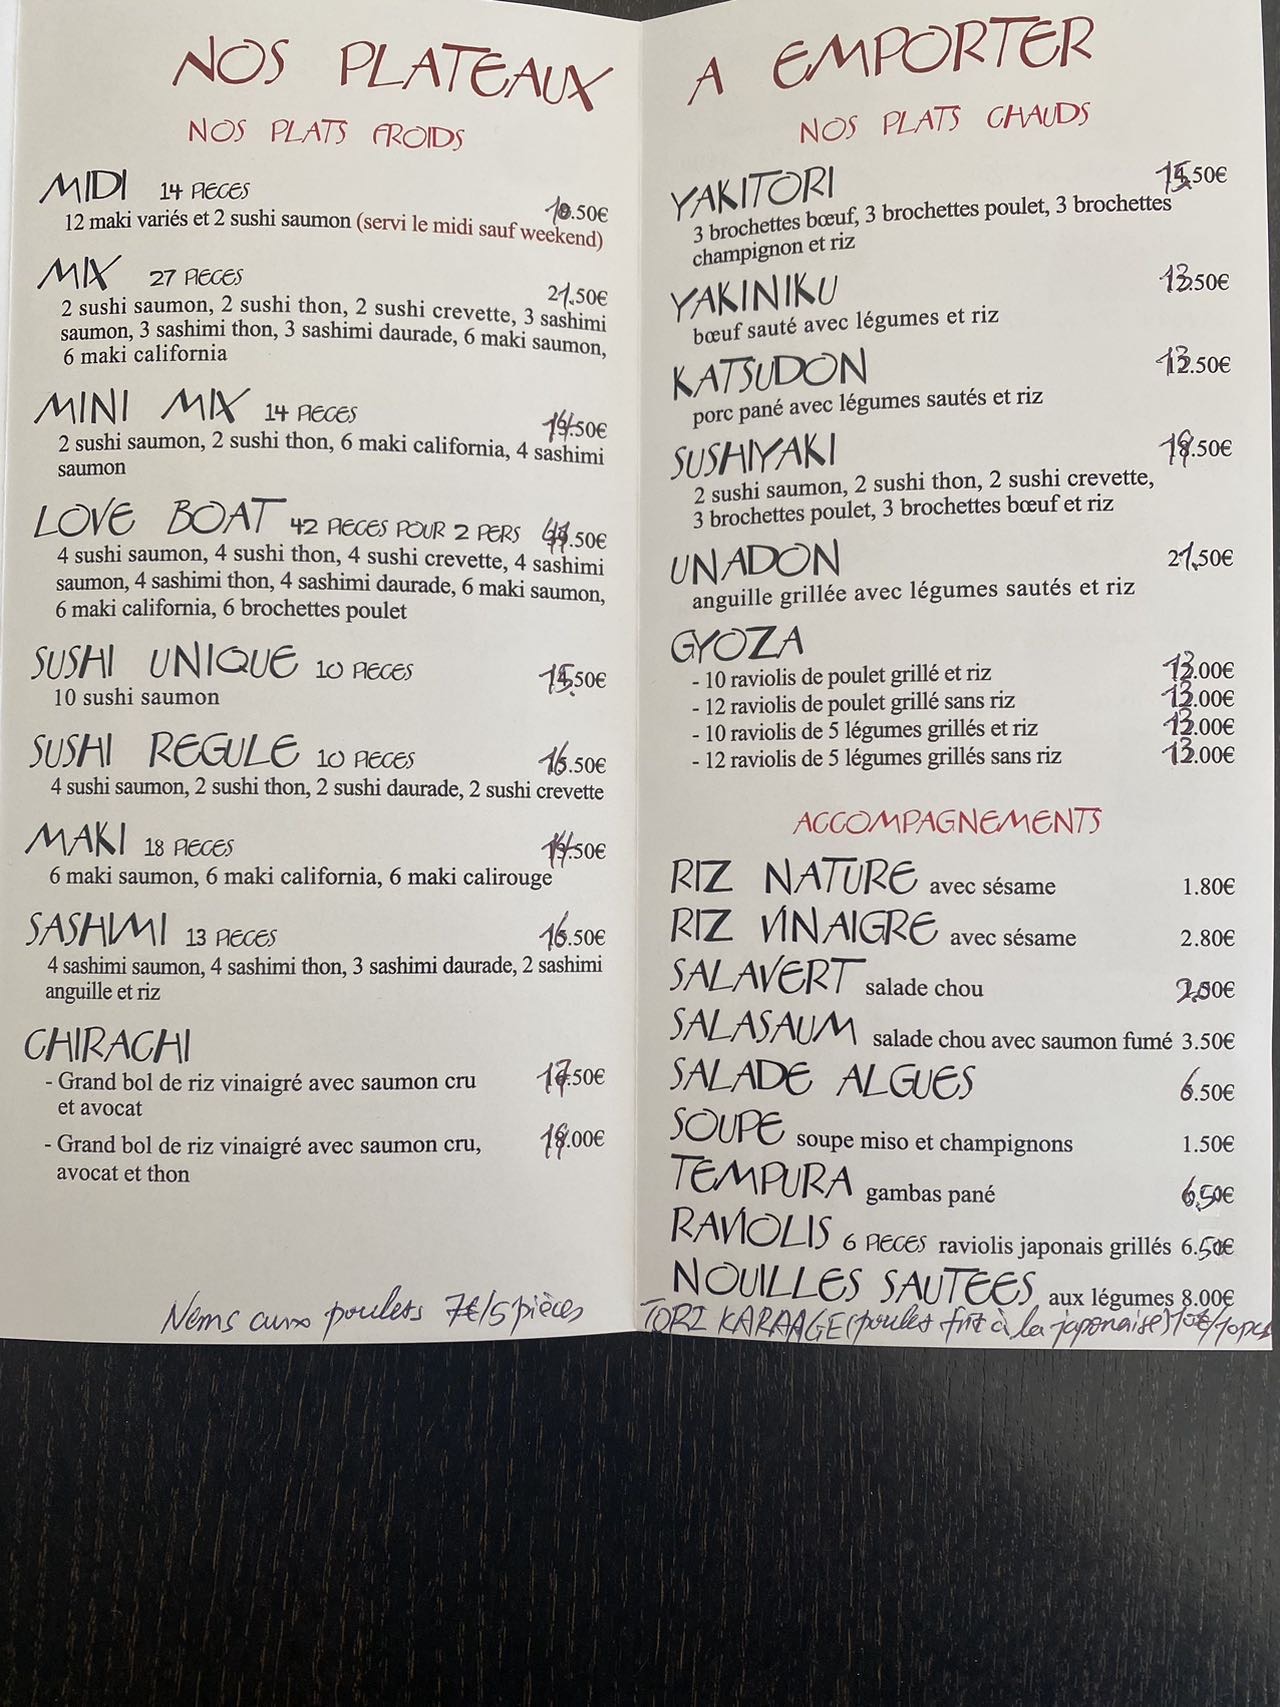 NOS PLATEAUX
NOS PLATS FROIDS
MIDI 14 PIECES
12 maki variés et 2 sushi saumon (servi le midi sauf weekend)
MIX 27 PIECES 21.50€
2 sushi saumon, 2 sushi thon, 2 sushi crevette, 3 sashimi
saumon, 3 sashimi thon, 3 sashimi daurade, 6 maki saumon,
6 maki california
MINI MIX 14 PIECES
2 sushi saumon, 2 sushi thon, 6 maki california, 4 sashimi
saumon
LOVE BOAT 42 PIECES POUR 2 PERS
4 sushi saumon, 4 sushi thon, 4 sushi crevette, 4 sashimi
saumon, 4 sashimi thon, 4 sashimi daurade, 6 maki saumon,
6 maki california, 6 brochettes poulet
SUSHI UNIQUE 10 PIECES 15.50€
10 sushi saumon
SUSHI REGULE 10 PIECES 16.50€
4 sushi saumon, 2 sushi thon, 2 sushi daurade, 2 sushi crevette
MAKI 18 PIECES
6 maki saumon, 6 maki california, 6 maki calirouge
SASHIMI 13 PIECES 16.50€
4 sashimi saumon, 4 sashimi thon, 3 sashimi daurade, 2 sashimi
anguille et riz
CHIRACHI
- Grand bol de riz vinaigré avec saumon cru 17.50€
et avocat
- Grand bol de riz vinaigré avec saumon cru,
avocat et thon
Nems aux poulets 7€/5 pièces
A EMPORTER
NOS PLATS CHAUDS
YAKITORI 15.50€
3 brochettes bœuf, 3 brochettes poulet, 3 brochettes
champignon et riz
YAKINIKU 13.50€
bœuf sauté avec légumes et riz
KATSUDON 13.50€
porc pané avec légumes sautés et riz
SUSHIYAKI
2 sushi saumon, 2 sushi thon, 2 sushi crevette,
3 brochettes poulet, 3 brochettes bœuf et riz
UNADON 21.50€
anguille grillée avec légumes sautés et riz
GYOZA
- 10 raviolis de poulet grillé et riz 13.00€
- 12 raviolis de poulet grillé sans riz 13.00€
- 10 raviolis de 5 légumes grillés et riz 13.00€
- 12 raviolis de 5 légumes grillés sans riz 13.00€
ACCOMPAGNEMENTS
RIZ NATURE avec sésame 1.80€
RIZ VINAIGRE avec sésame 2.80€
SALAVERT salade chou
SALASAUM salade chou avec saumon fumé 3.50€
SALADE ALGUES 6.50€
SOUPE soupe miso et champignons 1.50€
TEMPURA gambas pané 6.50€
RAVIOLIS 6 PIECES raviolis japonais grillés 6.50€
NOUILLES SAUTEES aux légumes 8.00€
TORI KARAAGE (poulet frit à la japonaise) 10€/10pcs